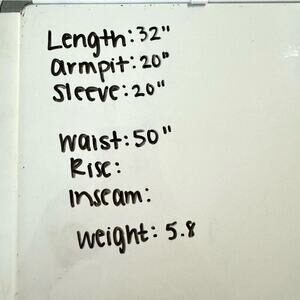 Length: 32"
armpit: 20"
Sleeve: 20"
Waist: 50"
Rise:
Inseam:
Weight: 5.8